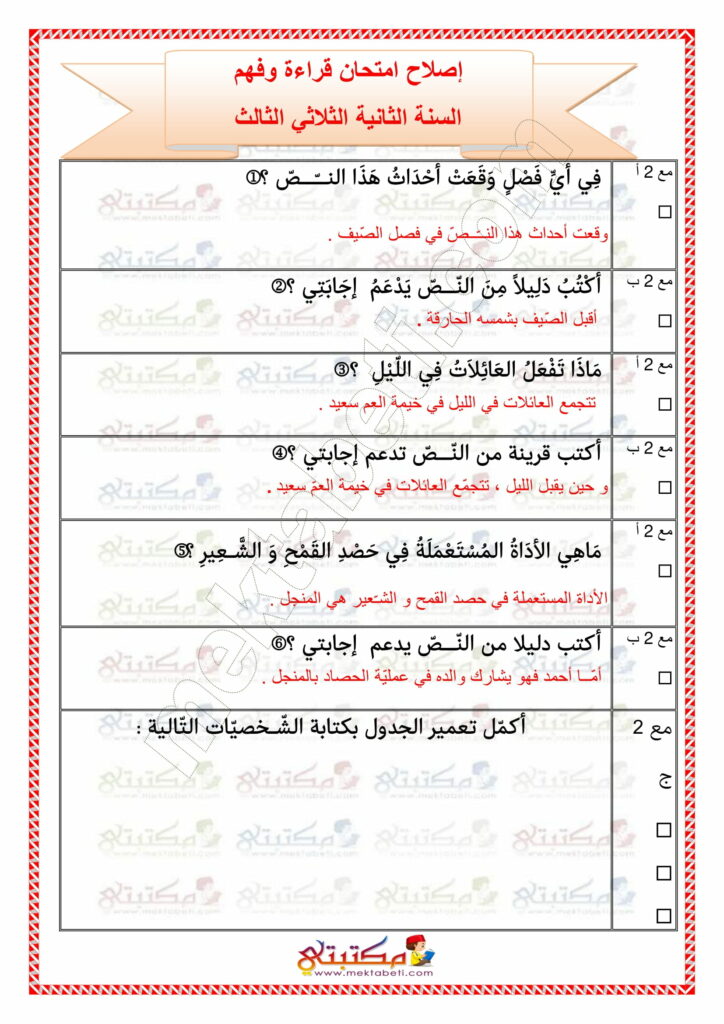 إصلاح امتحان قراءة وفهم
السنة الثانية الثلاثي الثالث
مع 2 أ
فِي أيِّ فَصْلٍ وَقَعَتْ أحْدَاثُ هَذَا النـــصّ ؟①
وقعت أحداث هذا النـصّ في فصل الصّيف .
مع 2 ب
أكْتُبُ دَلِيلاً مِنَ النّـــصّ يَدْعَمُ إجَابَتِي ؟②
أقبل الصّيف بشمسه الحارقة .
مع 2 أ
مَاذَا تَفْعَلُ العَائِلاَتُ فِي اللّيْلِ ؟③
تتجمع العائلات في الليل في خيمة العم سعيد .
مع 2 ب
أكتب قرينة من النّـــصّ تدعم إجابتي ؟④
و حين يقبل الليل ، تتجمّع العائلات في خيمة العمّ سعيد .
مع 2 أ
مَاهِي الأدَاةُ المُسْتَعْمَلَةُ فِي حَصْدِ القَمْحِ وَ الشَّـعِيرِ ؟⑤
الأداة المستعملة في حصد القمح و الشـّعير هي المنجل .
مع 2 ب
أكتب دليلا من النّـــصّ يدعم إجابتي ؟⑥
أمّـا أحمد فهو يشارك والده في عمليّة الحصاد بالمنجل .
مع 2
ج
أكمّل تعمير الجدول بكتابة الشّـخصيّات التّالية :
mektabeti.com
مكتبتي
www.mektabeti.com